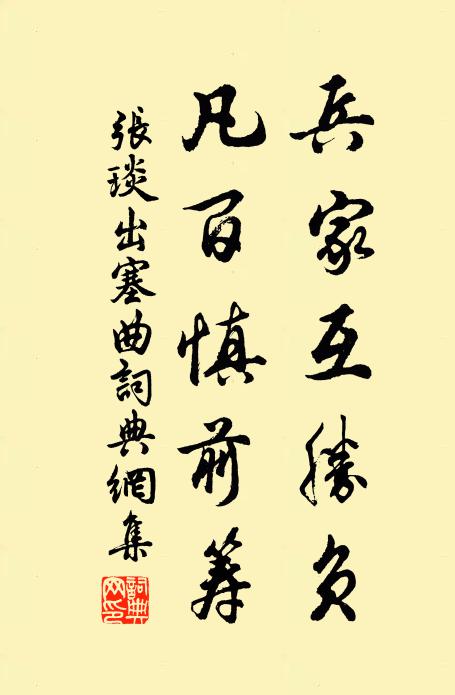 兵家互勝負
凡百慎前筹
張琰出塞曲詞典網集
詞典网印